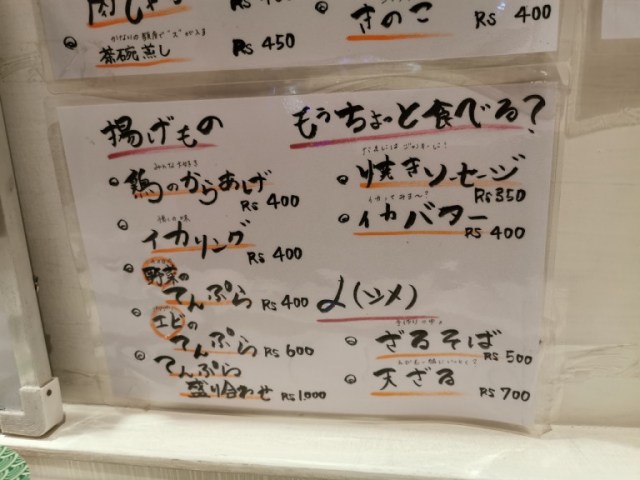 Rs 400
きのこ Rs 400
茶碗蒸し Rs 450
揚げもの
みんな大好き
鶏のからあげ
Rs 400
イカリング
Rs 400
野菜の
てんぷら Rs 400
エビの
てんぷら Rs 600
てんぷら
盛り合わせ Rs 1,000
もうちょっと食べる?
焼きソーセージ
Rs 350
イカバター
Rs 400
〆(シメ)
ざるそば
Rs 500
天ざる
Rs 700